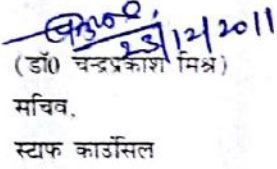 23/12/2011
(डॉ0 चन्द्रप्रकाश मिश्र)
सचिव,
स्टाफ काउंसिल